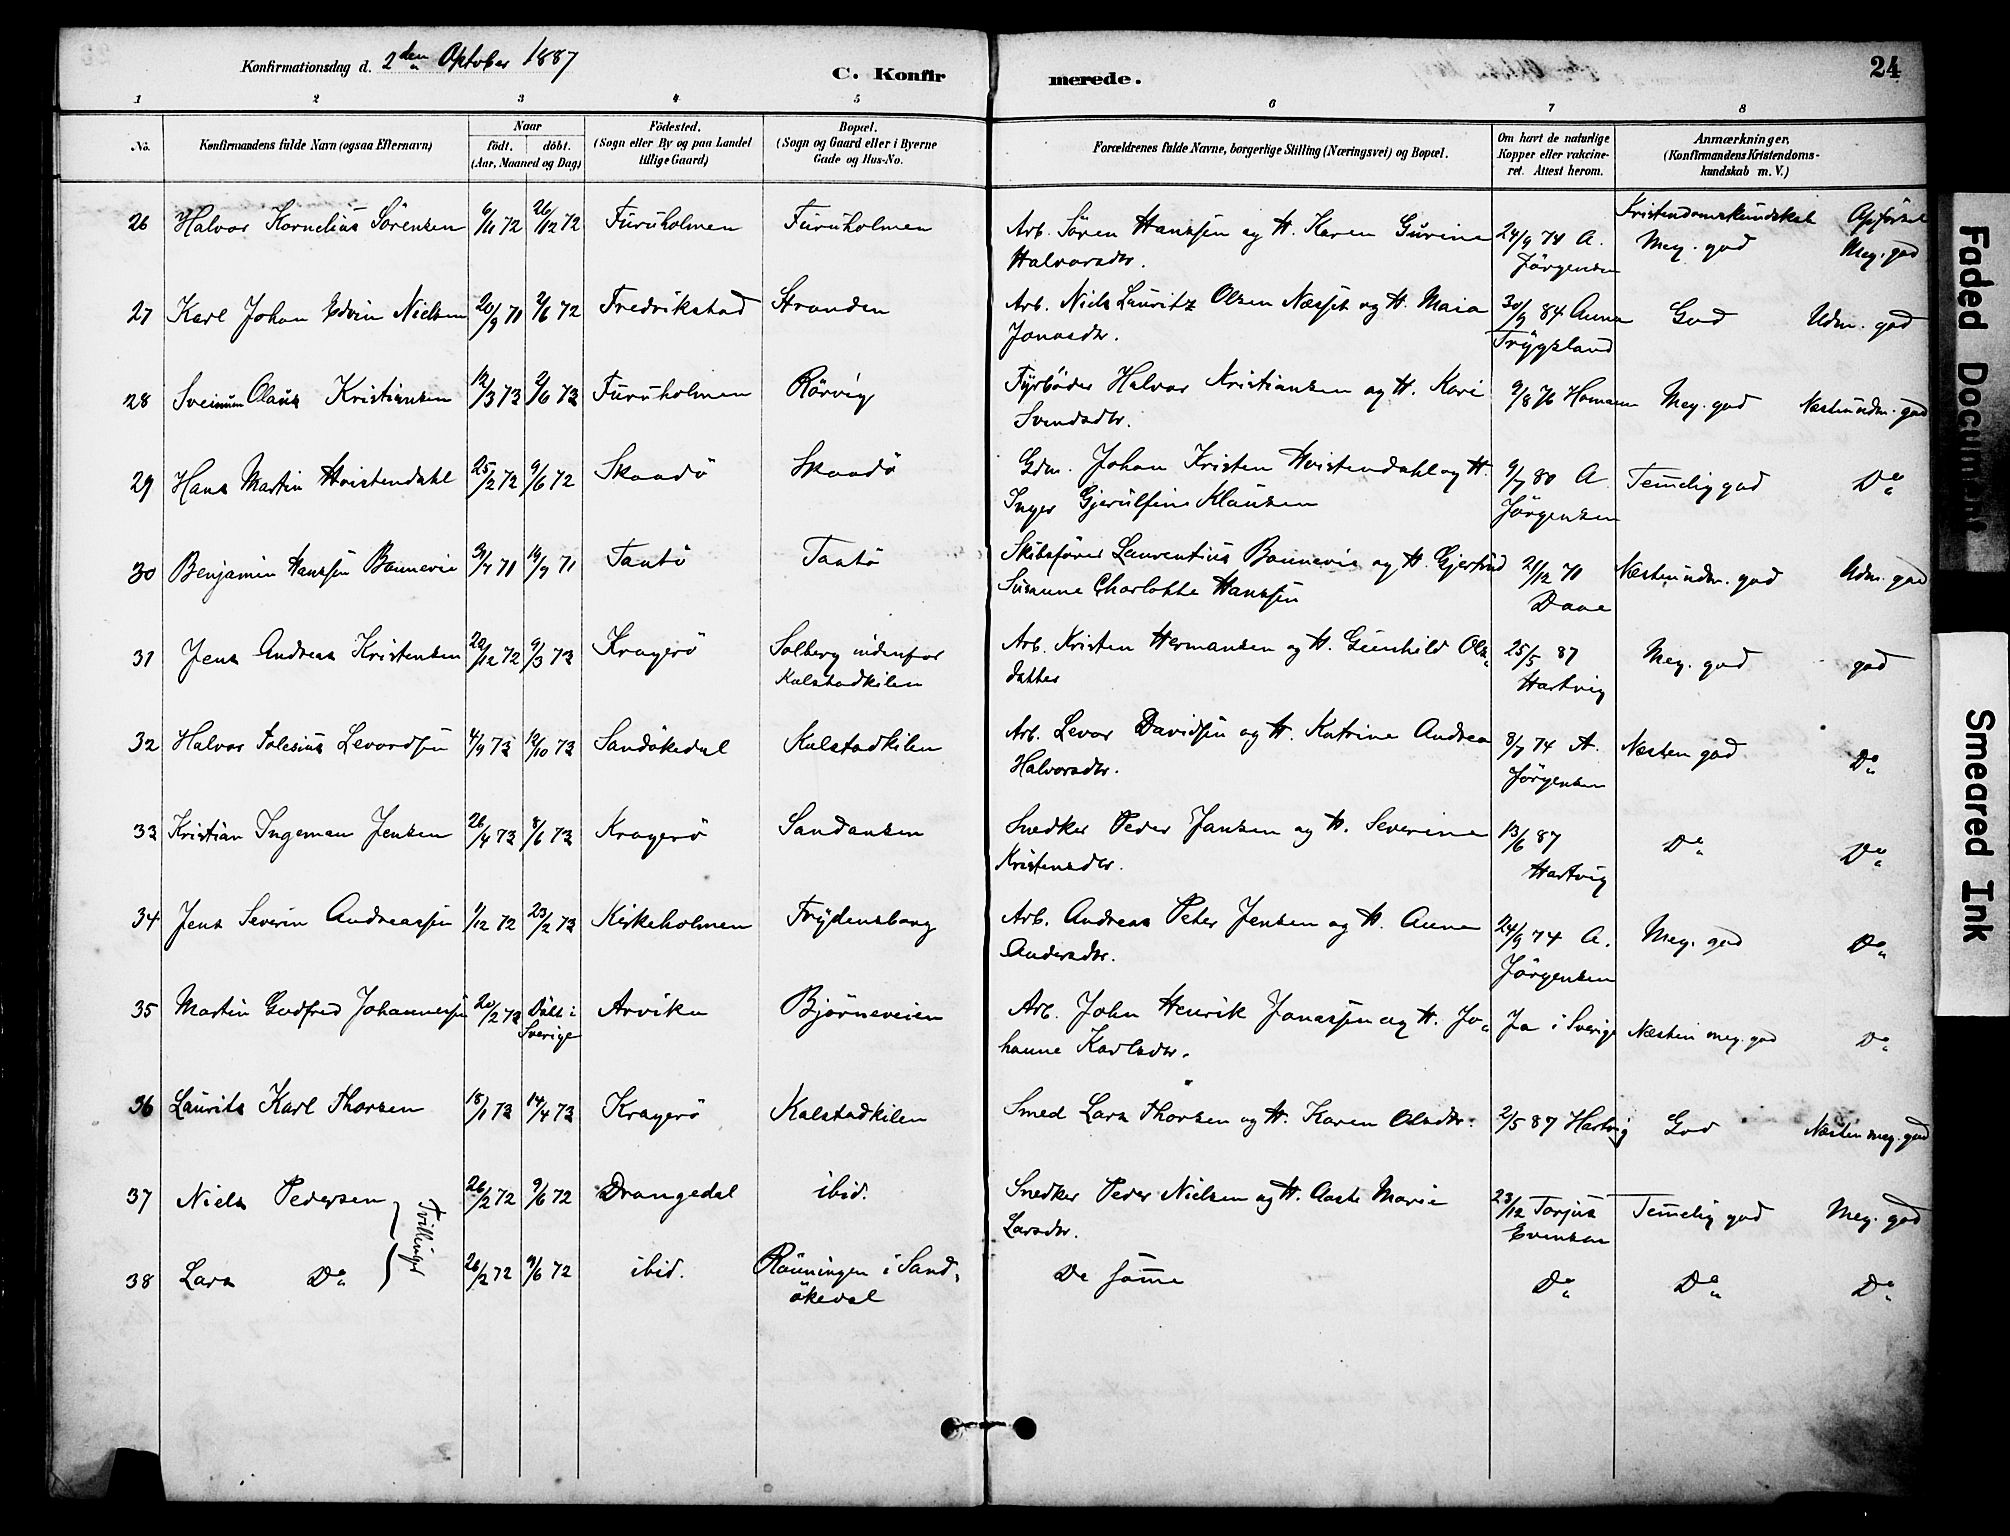 Konfirmationsdag d. 2den Oktober 1887
C. Konfirmerede.
24
1 2 3 4 5 6 7 8
No.
Konfirmandens fulde Navn (ogsaa Efternavn)
Naar
födt. döbt.
(Aar, Maaned og Dag)
Födested.
(Sogn eller By og paa Landet
tillige Gaard)
Bopæl.
(Sogn og Gaard eller i Byerne
Gade og Hus-No.
Forældrenes fulde Navne, borgerlige Stilling (Næringsvei) og Bopæl.
Om havt de naturlige
Kopper eller vakcine-
ret. Attest herom.
Anmærkninger,
(Konfirmandens Kristendoms-
kundskab m. V.)
Kristendomskundskab Opförsel
26 Halvor Kornelius Sörensen 6/11 72 26/12 72 Furuholmen Furuholmen Arb. Sören Hanssen og H. Karen Gurine 24/9 74 A. Meg. god Meg. god
Halvorsdtr. Jörgensen
27 Karl Johan Edvin Nielsen 20/9 71 2/6 72 Fredrikstad Stranden Arb. Niels Lauritz Olsen Næsset og H. Maia 30/9 84 Anna God Udm. god
Jonasdtr. Trygsland
28 Sveinum Olaus Kristiansen 12/3 73 2/6 73 Furuholmen Rörvig Fyrböder Halvor Kristiansen og H. Kari 9/8 76 Homann Meg. god Næsten udm. god
Svendsdtr.
29 Hans Martin Hvistendahl 25/2 72 9/6 72 Skaadö Skaadö Gdm. Johan Kristen Hvistendahl og H. 9/7 80 A. Temelig god Do
Inger Gjerulfine Klausen Jörgensen
30 Benjamin Hanssen Bonnevie 31/7 71 19/9 71 Taatö Taatö Skibsförer Laurentius Bonnevie og H. Gjertrud 21/12 71 Næsten udm. god Udm. god
Susanne Charlotte Hanssen Daae
31 Jens Andreas Kristensen 22/12 72 9/3 73 Kragerö Solberg indenfor Arb. Kristen Hermansen og H. Gunhild Ols- 25/5 87 Meg. god god
Kalstadkilen datter Hartvig
32 Halvor Tolesius Levordsen 4/9 73 12/10 73 Sandökedal Kalstadkilen Arb. Levor Davidsen og H. Katrine Andrea 8/7 74 A. Næsten god Do
Halvorsdtr. Jörgensen
33 Kristian Ingeman Jensen 26/4 73 8/6 73 Kragerö Sandaasen Snedker Peder Jansen og H. Severine 13/6 87 Do Do
Kristensdtr. Hartvig
34 Jens Severin Andreassen 1/12 72 23/2 73 Kirkeholmen Frydensborg Arb. Andreas Peter Jensen og H. Anne 24/9 74 A. Meg. god Do
Andersdtr. Jörgensen
35 Martin Godfred Johannesen 20/2 73 Döbt i Arvika Bjørneveien Arb. John Henrik Jonassen og H. Jo- Ja i Sverige Næsten meg. god Do
Sverige hanne Karlsdtr.
36 Laurits Karl Thorsen 18/1 73 14/4 73 Kragerö Kalstadkilen Smed Lars Thorsen og H. Karen Olsdtr. 2/5 87 Hartvig God Næsten meg. god
37 Niels Pedersen 26/2 72 9/6 72 Drangedal ibid. Snedker Peder Nielsen og H. Aaste Marie 23/12 Torjus Temelig god Meg. god
Tvillinger Larsdtr. Evensen
38 Lars Do 26/2 72 9/6 72 ibid. Rönningen i Sand- De samme Do Do Do
ökedal
Faded Document
Smeared Ink